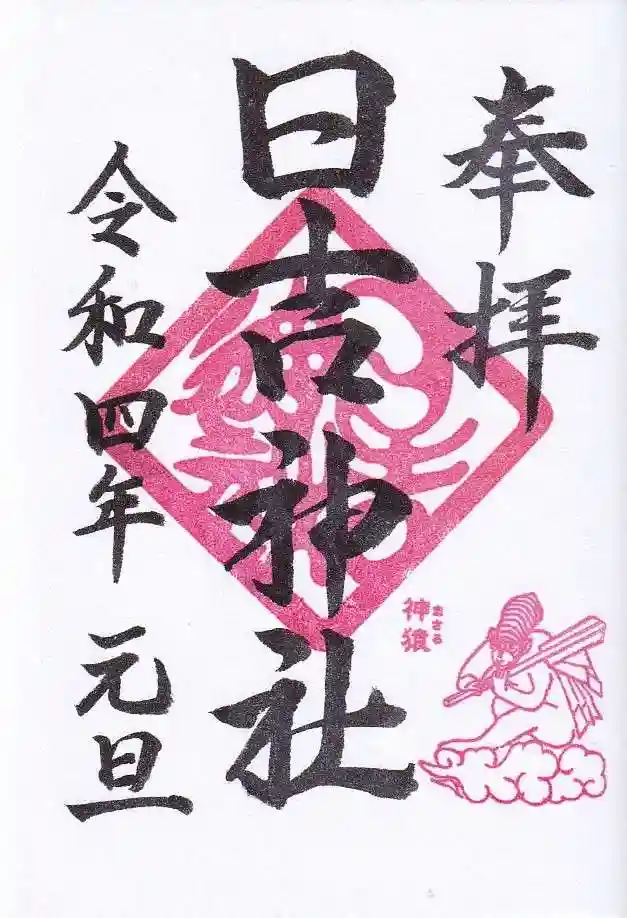 奉拝
日吉神社
神猿
まさる
令和四年 元旦